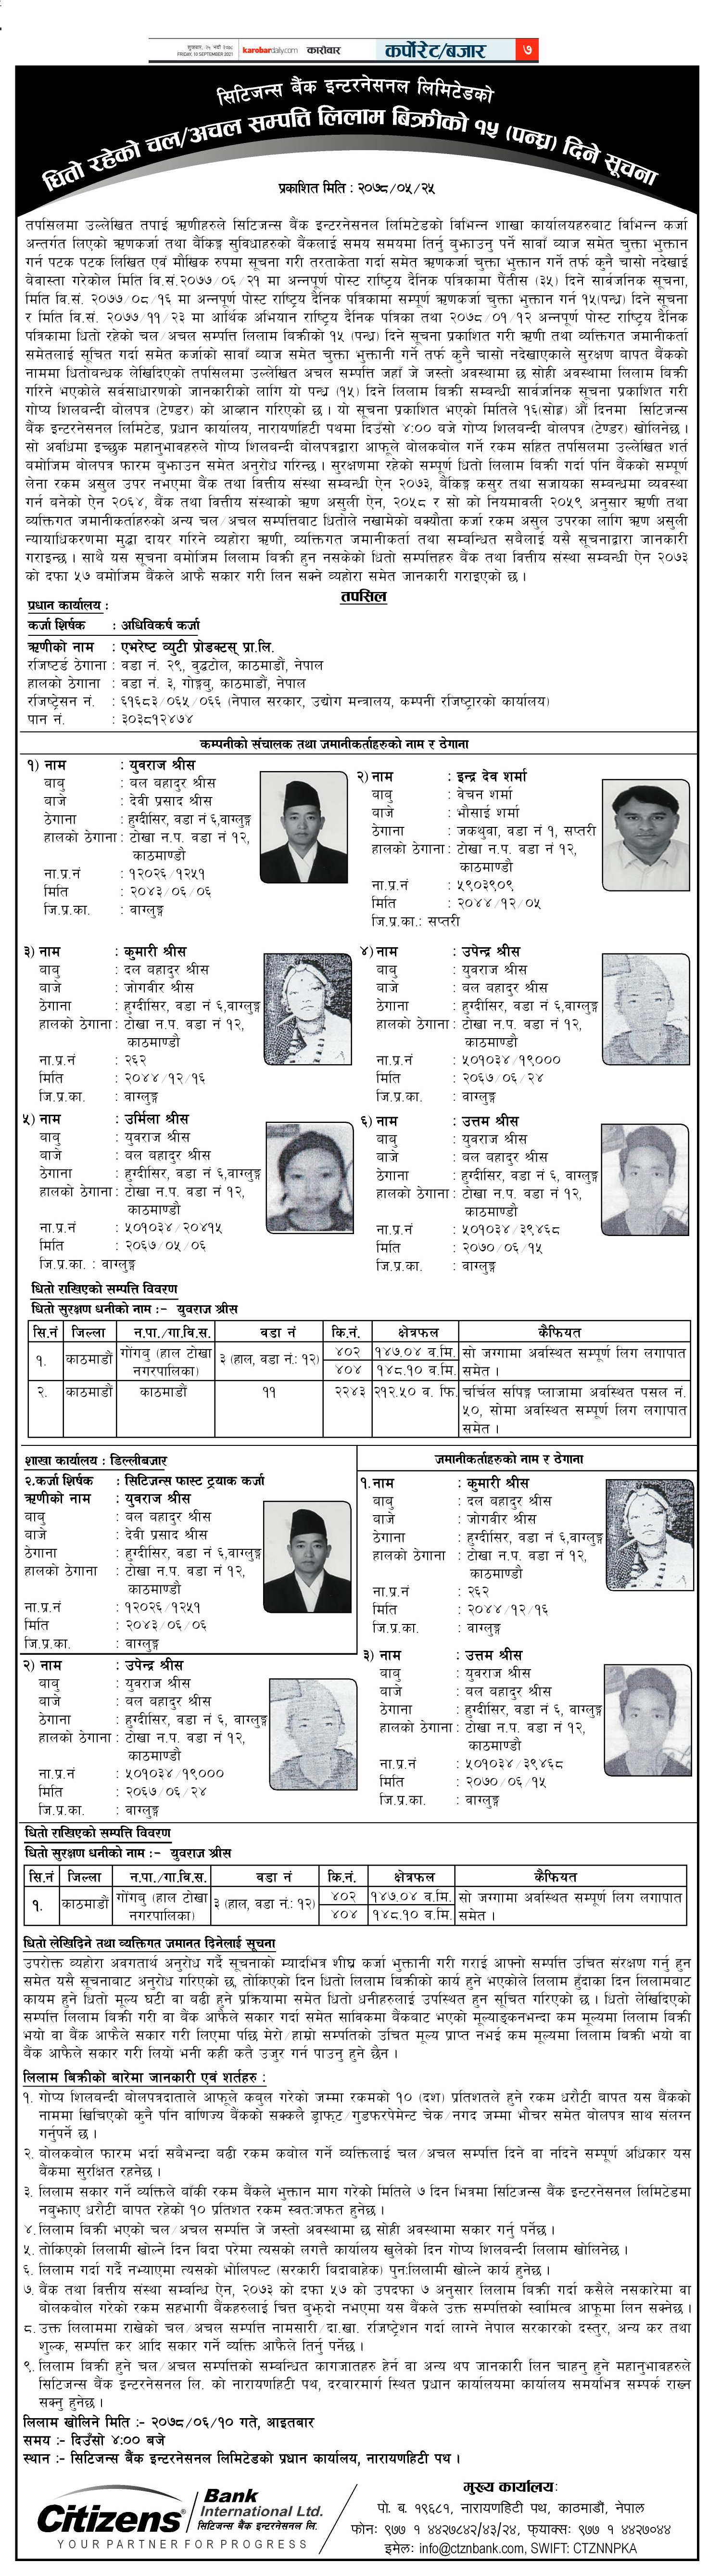 शुक्रबार, २५ भदौ २०७८
FRIDAY, 10 SEPTEMBER 2021
karobardaily.com
कारोवार
कर्पोरेट/बजार
७
सिटिजन्स बैंक इन्टरनेसनल लिमिटेडको
धितो रहेको चल/अचल सम्पत्ति लिलाम बिक्रीको १५ (पन्ध्र) दिने सूचना
प्रकाशित मिति : २०७८/०५/२५
तपसिलमा उल्लेखित तपाई ऋणीहरुले सिटिजन्स बैंक इन्टरनेसनल लिमिटेडको विभिन्न शाखा कार्यालयहरुबाट विभिन्न कर्जा
अन्तर्गत लिएको ऋणकर्जा तथा बैंकिङ्ग सुविधाहरुको बैंकलाई समय समयमा तिर्नु बुझाउनु पर्ने सावाँ व्याज समेत चुक्ता भुक्तान
गर्न पटक पटक लिखित एवं मौखिक रुपमा सूचना गरी तरताकेता गर्दा समेत ऋणकर्जा चुक्ता भुक्तान गर्ने तर्फ कुनै चासो नदेखाई
बेवास्ता गरेकोले मिति वि.सं.२०७७/०६/२१ मा अन्नपूर्ण पोस्ट राष्ट्रिय दैनिक पत्रिकामा पैंतीस (३५) दिने सार्वजनिक सूचना,
मिति वि.सं. २०७७/०८/१६ मा अन्नपूर्ण पोस्ट राष्ट्रिय दैनिक पत्रिकामा सम्पूर्ण ऋणकर्जा चुक्ता भुक्तान गर्न १५(पन्ध्र) दिने सूचना
र मिति वि.सं. २०७७/११/२३ मा आर्थिक अभियान राष्ट्रिय दैनिक पत्रिका तथा २०७८/०१/१२ अन्नपूर्ण पोस्ट राष्ट्रिय दैनिक
पत्रिकामा धितो रहेको चल/अचल सम्पत्ति लिलाम बिक्रीको १५ (पन्ध्र) दिने सूचना प्रकाशित गरी ऋणी तथा व्यक्तिगत जमानीकर्ता
समेतलाई सूचित गर्दा समेत कर्जाको सावाँ व्याज समेत चुक्ता भुक्तानी गर्ने तर्फ कुनै चासो नदेखाएकाले सुरक्षण बापत बैंकको
नाममा धितोवन्धक लेखिदिएको तपसिलमा उल्लेखित अचल सम्पत्ति जहाँ जे जस्तो अवस्थामा छ सोही अवस्थामा लिलाम बिक्री
गरिने भएकोले सर्वसाधारणको जानकारीको लागि यो पन्ध्र (१५) दिने लिलाम बिक्री सम्बन्धी सार्वजनिक सूचना प्रकाशित गरी
गोप्य शिलवन्दी वोलपत्र (टेण्डर) को आव्हान गरिएको छ । यो सूचना प्रकाशित भएको मितिले १६(सोह्र) औं दिनमा सिटिजन्स
बैंक इन्टरनेसनल लिमिटेड, प्रधान कार्यालय, नारायणहिटी पथमा दिउँसो ४:०० बजे गोप्य शिलवन्दी वोलपत्र (टेण्डर) खोलिनेछ ।
सो अवधिमा इच्छुक महानुभावहरुले गोप्य शिलवन्दी वोलपत्रद्वारा आफूले वोलकवोल गर्ने रकम सहित तपसिलमा उल्लेखित शर्त
बमोजिम वोलपत्र फारम बुझाउन समेत अनुरोध गरिन्छ । सुरक्षणमा रहेको सम्पूर्ण धितो लिलाम बिक्री गर्दा पनि बैंकको सम्पूर्ण
लेना रकम असुल उपर नभएमा बैंक तथा वित्तीय संस्था सम्बन्धी ऐन २०७३, बैंकिङ्ग कसुर तथा सजायका सम्बन्धमा व्यवस्था
गर्न बनेको ऐन २०६४, बैंक तथा वित्तीय संस्थाको ऋण असुली ऐन, २०५८ र सो को नियमावली २०५९ अनुसार ऋणी तथा
व्यक्तिगत जमानीकर्ताहरुको अन्य चल/अचल सम्पत्तिबाट धितोले नखामेको बक्यौता कर्जा रकम असुल उपरका लागि ऋण असुली
न्यायाधिकरणमा मुद्धा दायर गरिने व्यहोरा ऋणी, व्यक्तिगत जमानीकर्ता तथा सम्बन्धित सबैलाई यसै सूचनाद्वारा जानकारी
गराइन्छ । साथै यस सूचना बमोजिम लिलाम बिक्री हुन नसकेको धितो सम्पत्तिहरु बैंक तथा वित्तीय संस्था सम्बन्धी ऐन २०७३
को दफा ५७ बमोजिम बैंकले आफै सकार गरी लिन सक्ने व्यहोरा समेत जानकारी गराइएको छ ।
तपसिल
प्रधान कार्यालय :
कर्जा शिर्षक : अधिविकर्ष कर्जा
ऋणीको नाम : एभरेष्ट ब्युटी प्रोडक्टस् प्रा.लि.
रजिष्टर्ड ठेगाना : वडा नं. २९, बुद्धटोल, काठमाडौं, नेपाल
हालको ठेगाना : वडा नं. ३, गोङ्गबु, काठमाडौं, नेपाल
रजिष्ट्रेसन नं. : ६१६८३/०६५/०६६ (नेपाल सरकार, उद्योग मन्त्रालय, कम्पनी रजिष्ट्रारको कार्यालय)
पान नं. : ३०३८१२४७४
कम्पनीको संचालक तथा जमानीकर्ताहरुको नाम र ठेगाना
१) नाम : युवराज श्रीस
बाबु : बल बहादुर श्रीस
बाजे : देवी प्रसाद श्रीस
ठेगाना : हुग्दीसिर, वडा नं ६,वाग्लुङ्ग
हालको ठेगाना : टोखा न.प. वडा नं १२,
काठमाण्डौ
ना.प्र.नं : १२०२६/१२५१
मिति : २०४३/०६/०६
जि.प्र.का. : वाग्लुङ्ग
२) नाम : इन्द्र देव शर्मा
बाबु : वेचन शर्मा
बाजे : भौसाई शर्मा
ठेगाना : जकथुवा, वडा नं १, सप्तरी
हालको ठेगाना : टोखा न.प. वडा नं १२,
काठमाण्डौ
ना.प्र.नं : ५९०३९०९
मिति : २०४४/१२/०५
जि.प्र.का.: सप्तरी
३) नाम : कुमारी श्रीस
बाबु : दल बहादुर श्रीस
बाजे : जोगवीर श्रीस
ठेगाना : हुग्दीसिर, वडा नं ६,वाग्लुङ्ग
हालको ठेगाना : टोखा न.प. वडा नं १२,
काठमाण्डौ
ना.प्र.नं : २६२
मिति : २०४४/१२/१६
जि.प्र.का. : वाग्लुङ्ग
४) नाम : उपेन्द्र श्रीस
बाबु : युवराज श्रीस
बाजे : बल बहादुर श्रीस
ठेगाना : हुग्दीसिर, वडा नं ६,वाग्लुङ्ग
हालको ठेगाना : टोखा न.प. वडा नं १२,
काठमाण्डौ
ना.प्र.नं : ५०१०३४/१९०००
मिति : २०६७/०६/२४
जि.प्र.का. : वाग्लुङ्ग
५) नाम : उर्मिला श्रीस
बाबु : युवराज श्रीस
बाजे : बल बहादुर श्रीस
ठेगाना : हुग्दीसिर, वडा नं ६,वाग्लुङ्ग
हालको ठेगाना : टोखा न.प. वडा नं १२,
काठमाण्डौ
ना.प्र.नं : ५०१०३४/२०४१५
मिति : २०६७/०५/०६
जि.प्र.का. : वाग्लुङ्ग
६) नाम : उत्तम श्रीस
बाबु : युवराज श्रीस
बाजे : बल बहादुर श्रीस
ठेगाना : हुग्दीसिर, वडा नं ६, वाग्लुङ्ग
हालको ठेगाना : टोखा न.प. वडा नं १२,
काठमाण्डौ
ना.प्र.नं : ५०१०३४/३९४६८
मिति : २०७०/०६/१५
जि.प्र.का. : वाग्लुङ्ग
धितो राखिएको सम्पत्ति विवरण
धितो सुरक्षण धनीको नाम :- युवराज श्रीस
सि.नं जिल्ला न.पा./गा.वि.स. वडा नं कि.नं. क्षेत्रफल कैफियत
१. काठमाडौं गोंगबु (हाल टोखा नगरपालिका) ३ (हाल, वडा नं.: १२) ४०२ १४७.०४ व.मि. सो जग्गामा अवस्थित सम्पूर्ण लिग लगापात
४०४ १४८.१० व.मि. समेत ।
२. काठमाडौं काठमाडौं ११ २२४३ २१२.५० व. फि. चर्चिल सपिङ्ग प्लाजामा अवस्थित पसल नं.
५०, सोमा अवस्थित सम्पूर्ण लिग लगापात
समेत ।
शाखा कार्यालय : डिल्लीबजार
२.कर्जा शिर्षक : सिटिजन्स फास्ट ट्रयाक कर्जा
ऋणीको नाम : युवराज श्रीस
बाबु : बल बहादुर श्रीस
बाजे : देवी प्रसाद श्रीस
ठेगाना : हुग्दीसिर, वडा नं ६,वाग्लुङ्ग
हालको ठेगाना : टोखा न.प. वडा नं १२,
काठमाण्डौ
ना.प्र.नं : १२०२६/१२५१
मिति : २०४३/०६/०६
जि.प्र.का. : वाग्लुङ्ग
जमानीकर्ताहरुको नाम र ठेगाना
१. नाम : कुमारी श्रीस
बाबु : दल बहादुर श्रीस
बाजे : जोगवीर श्रीस
ठेगाना : हुग्दीसिर, वडा नं ६,वाग्लुङ्ग
हालको ठेगाना : टोखा न.प. वडा नं १२,
काठमाण्डौ
ना.प्र.नं : २६२
मिति : २०४४/१२/१६
जि.प्र.का. : वाग्लुङ्ग
२) नाम : उपेन्द्र श्रीस
बाबु : युवराज श्रीस
बाजे : बल बहादुर श्रीस
ठेगाना : हुग्दीसिर, वडा नं ६, वाग्लुङ्ग
हालको ठेगाना : टोखा न.प. वडा नं १२,
काठमाण्डौ
ना.प्र.नं : ५०१०३४/१९०००
मिति : २०६७/०६/२४
जि.प्र.का. : वाग्लुङ्ग
३) नाम : उत्तम श्रीस
बाबु : युवराज श्रीस
बाजे : बल बहादुर श्रीस
ठेगाना : हुग्दीसिर, वडा नं ६, वाग्लुङ्ग
हालको ठेगाना : टोखा न.प. वडा नं १२,
काठमाण्डौ
ना.प्र.नं : ५०१०३४/३९४६८
मिति : २०७०/०६/१५
जि.प्र.का. : वाग्लुङ्ग
धितो राखिएको सम्पत्ति विवरण
धितो सुरक्षण धनीको नाम :- युवराज श्रीस
सि.नं जिल्ला न.पा./गा.वि.स. वडा नं कि.नं. क्षेत्रफल कैफियत
१. काठमाडौं गोंगबु (हाल टोखा नगरपालिका) ३ (हाल, वडा नं.: १२) ४०२ १४७.०४ व.मि. सो जग्गामा अवस्थित सम्पूर्ण लिग लगापात
४०४ १४८.१० व.मि. समेत ।
धितो लेखिदिने तथा व्यक्तिगत जमानत दिनेलाई सूचना
उपरोक्त व्यहोरा अवगतार्थ अनुरोध गर्दै सूचनाको म्यादभित्र शीघ्र कर्जा भुक्तानी गरी गराई आफ्नो सम्पत्ति उचित संरक्षण गर्नु हुन
समेत यसै सूचनाबाट अनुरोध गरिएको छ, तोकिएको दिन धितो लिलाम बिक्रीको कार्य हुने भएकोले लिलाम हुँदाका दिन लिलामबाट
कायम हुने धितो मूल्य घटी वा बढी हुने प्रक्रियामा समेत धितो धनीहरुलाई उपस्थित हुन सूचित गरिएको छ । धितो लेखिदिएको
सम्पत्ति लिलाम बिक्री गरी वा बैंक आफैले सकार गर्दा समेत साविकमा बैंकबाट भएको मूल्याङ्कनभन्दा कम मूल्यमा लिलाम बिक्री
भयो वा बैंक आफैले सकार गरी लिएमा पछि मेरो/हाम्रो सम्पतिको उचित मूल्य प्राप्त नभई कम मूल्यमा लिलाम बिक्री भयो वा
बैंक आफैले सकार गरी लियो भनी कही कतै उजुर गर्न पाउनु हुने छैन ।
लिलाम बिक्रीको बारेमा जानकारी एवं शर्तहरु :
१. गोप्य शिलवन्दी वोलपत्रदाताले आफूले कबुल गरेको जम्मा रकमको १० (दश) प्रतिशतले हुने रकम धरौटी वापत यस बैंकको
नाममा खिचिएको कुनै पनि वाणिज्य बैंकको सक्कलै ड्राफ्ट/गुडफरपेमेन्ट चेक/नगद जम्मा भौचर समेत वोलपत्र साथ संलग्न
गर्नुपर्ने छ ।
२. वोलकवोल फारम भर्दा सबैभन्दा बढी रकम कवोल गर्ने व्यक्तिलाई चल/अचल सम्पत्ति दिने वा नदिने सम्पूर्ण अधिकार यस
बैंकमा सुरक्षित रहनेछ ।
३. लिलाम सकार गर्ने व्यक्तिले बाँकी रकम बैंकले भुक्तान माग गरेको मितिले ७ दिन भित्रमा सिटिजन्स बैंक इन्टरनेसनल लिमिटेडमा
नबुझाए धरौटी वापत रहेको १० प्रतिशत रकम स्वत:जफत हुनेछ ।
४. लिलाम बिक्री भएको चल/अचल सम्पत्ति जे जस्तो अवस्थामा छ सोही अवस्थामा सकार गर्नु पर्नेछ ।
५. तोकिएको लिलामी खोल्ने दिन बिदा परेमा त्यसको लगत्तै कार्यालय खुलेको दिन गोप्य शिलवन्दी लिलाम खोलिनेछ ।
६. लिलाम गर्दा गर्दै नभ्याएमा त्यसको भोलिपल्ट (सरकारी विदावाहेक) पुन:लिलामी खोल्ने कार्य हुनेछ ।
७. बैंक तथा वित्तीय संस्था सम्बन्धि ऐन, २०७३ को दफा ५७ को उपदफा ७ अनुसार लिलाम बिक्री गर्दा कसैले नसकारेमा वा
वोलकवोल गरेको रकम सहभागी बैंकहरुलाई चित्त बुझ्दो नभएमा यस बैंकले उक्त सम्पत्तिको स्वामित्व आफूमा लिन सक्नेछ ।
८. उक्त लिलाममा राखेको चल/अचल सम्पत्ति नामसारी/दा.खा. रजिष्ट्रेशन गर्दा लाग्ने नेपाल सरकारको दस्तुर, अन्य कर तथा
शुल्क, सम्पत्ति कर आदि सकार गर्ने व्यक्ति आफैले तिर्नु पर्नेछ ।
९. लिलाम बिक्री हुने चल/अचल सम्पत्तिको सम्बन्धित कागजातहरु हेर्न वा अन्य थप जानकारी लिन चाहनु हुने महानुभावहरुले
सिटिजन्स बैंक इन्टरनेसनल लि. को नारायणहिटी पथ, दरबारमार्ग स्थित प्रधान कार्यालयमा कार्यालय समयभित्र सम्पर्क राख्न
सक्नु हुनेछ ।
लिलाम खोलिने मिति :- २०७८/०६/१० गते, आइतबार
समय :- दिउँसो ४:०० बजे
स्थान :- सिटिजन्स बैंक इन्टरनेसनल लिमिटेडको प्रधान कार्यालय, नारायणहिटी पथ ।
Citizens Bank International Ltd.
सिटिजन्स बैंक इन्टरनेसनल लि.
YOUR PARTNER FOR PROGRESS
मुख्य कार्यालय:
पो. ब. १९६८१, नारायणहिटी पथ, काठमाडौं, नेपाल
फोन: ९७७ १ ४४२७८४२/४३/२४, फ्याक्स: ९७७ १ ४४२७०४४
इमेल: info@ctznbank.com, SWIFT: CTZNNPKA